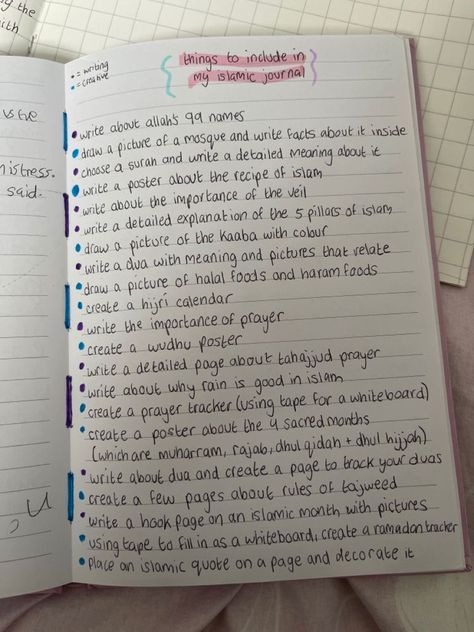 ng the
with
usive
mistress.
said.
• = writing
• = creative
things to include in
my islamic journal
• write about allah's 99 names
• draw a picture of a mosque and write facts about it inside
• choose a surah and write a detailed meaning about it
• write a poster about the recipe of islam
• write about the importance of the veil
• write a detailed explanation of the 5 pillars of islam
• draw a picture of the kaaba with colour
• write a dua with meaning and pictures that relate
• draw a picture of halal foods and haram foods
• create a hijri calendar
• write the importance of prayer
• create a wudhu poster
• write a detailed page about tahajjud prayer
• write about why rain is good in islam
• create a prayer tracker (using tape for a whiteboard)
• create a poster about the 4 sacred months
(which are muharram, rajab, dhul qidah + dhul hijjah)
• write about dua and create a page to track your duas
• create a few pages about rules of tajweed
• write a hook page on an islamic month with pictures
• using tape to fill in as a whiteboard, create a ramadan tracker
• place an islamic quote on a page and decorate it